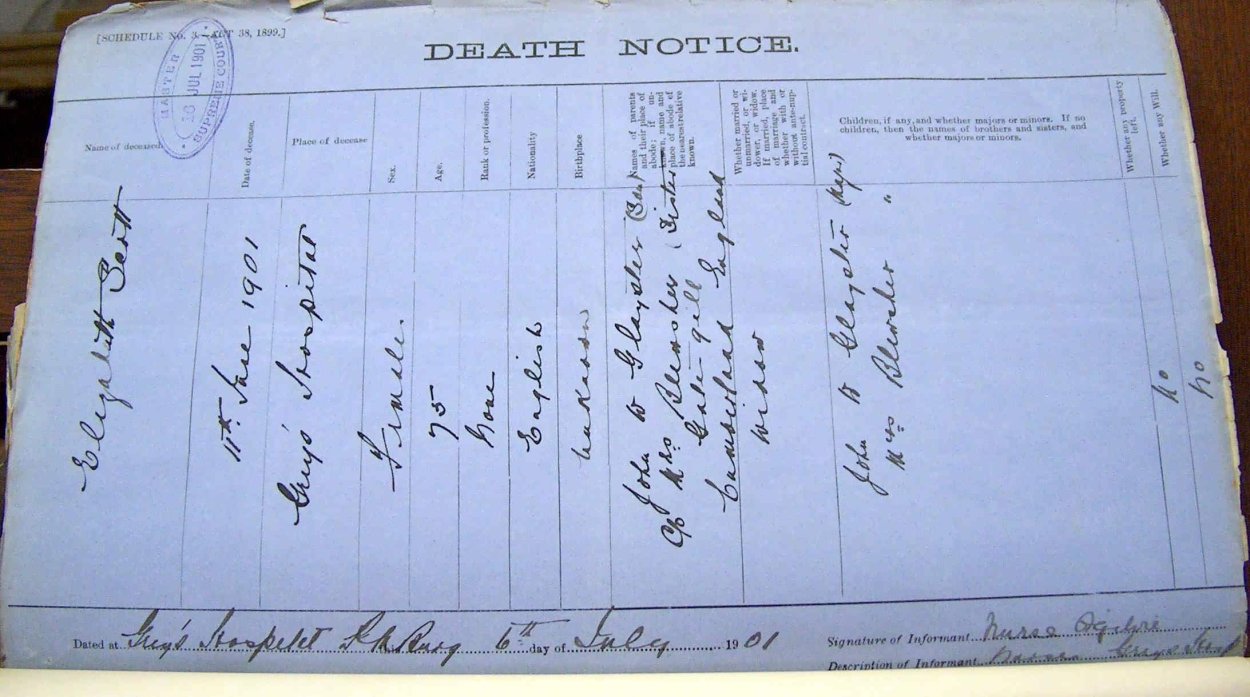 [SCHEDULE No. 3.—ACT 38, 1899.]
DEATH NOTICE.
MASTER
JUL 1901
SUPREME COURT
Name of deceased
Date of decease.
Place of decease
Sex.
Age.
Rank or profession.
Nationality
Birthplace
Names of parents
and their place of
abode; if un-
known, name and
place of abode of
the nearest relative
known.
Whether married or
unmarried, or wi-
dower, or widow.
If married, place
of marriage and
whether with or
without ante-nup-
tial contract.
Children, if any, and whether majors or minors. If no
children, then the names of brothers and sisters, and
whether majors or minors.
Whether any property
left.
Whether any Will.
Elizabeth Scott
11th June 1901
Grey's Hospital
Female.
75
None
English
unknown
John W Glayster (Son)
c/o Mrs Blewsher (Sister
Gale-gill
Cumberland England
Widow
John W Glayster
Mrs Blewsher "
no
no
Dated at Grey's Hospital P.M.Burg 6th day of July 1901
Signature of Informant Nurse Ogilvie
Description of Informant Nurse Greys Hosp